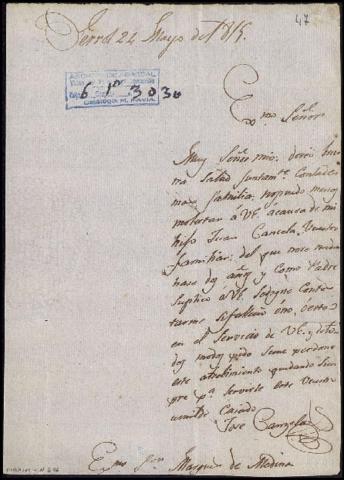 Ferrol 24 Mayo de 1815.
47
6 1º 3 0 30
Exmo. Señor
Muy Señor mio: deseo buena
Salud juntamte. Con la de
mas familia; no puedo menos
molestar á VE. á causa de mi
hijo Juan Canzela Vuestro
familiar: del que no se
hace dos años y como Padre
Suplico á VE. se digne Conte
tarme si fallecio ó no, ó está
en el Servicio de VE. y de to
dos modos pido se me perdone
este atrebimiento quedando Siem
pre pa. servirle este Vuestro
umilde Criado
Jose Canzela
Exmo. Sor. Marques de Medina